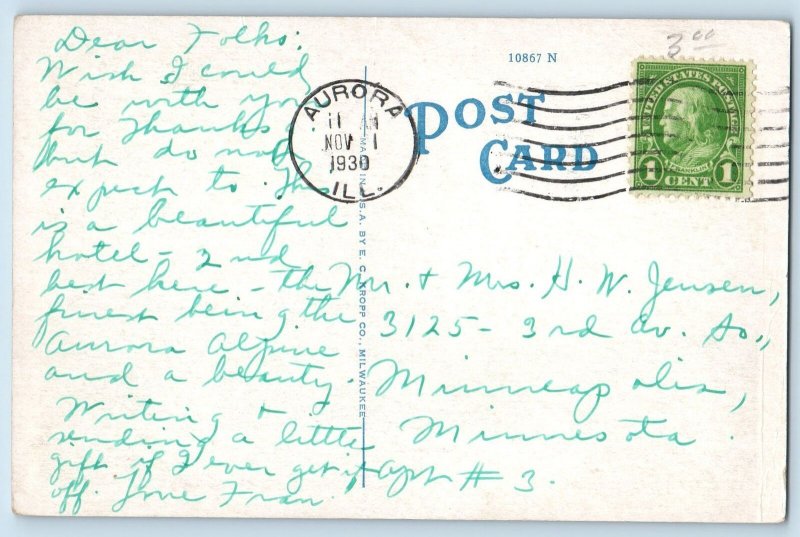 Dear Folks:
Wish I could
be with you
for Thanks
but do not
expect to. This
is a beautiful
hotel - 2nd
best here - the
finest being the
Aurora Alpine
and a beauty.
Writing &
sending a little
gift if I ever get it
off. Love Fran.
3.00
10867 N
POST
CARD
AURORA
NOV 1
1930
ILL.
UNITED STATES POSTAGE
FRANKLIN
1 CENT 1
U.S.A. BY E. C. KROPP CO., MILWAUKEE
Mr. & Mrs. H. W. Jensen,
3125 - 3rd Av. So.,
Minneapolis,
Minnesota.
Apt # 3.